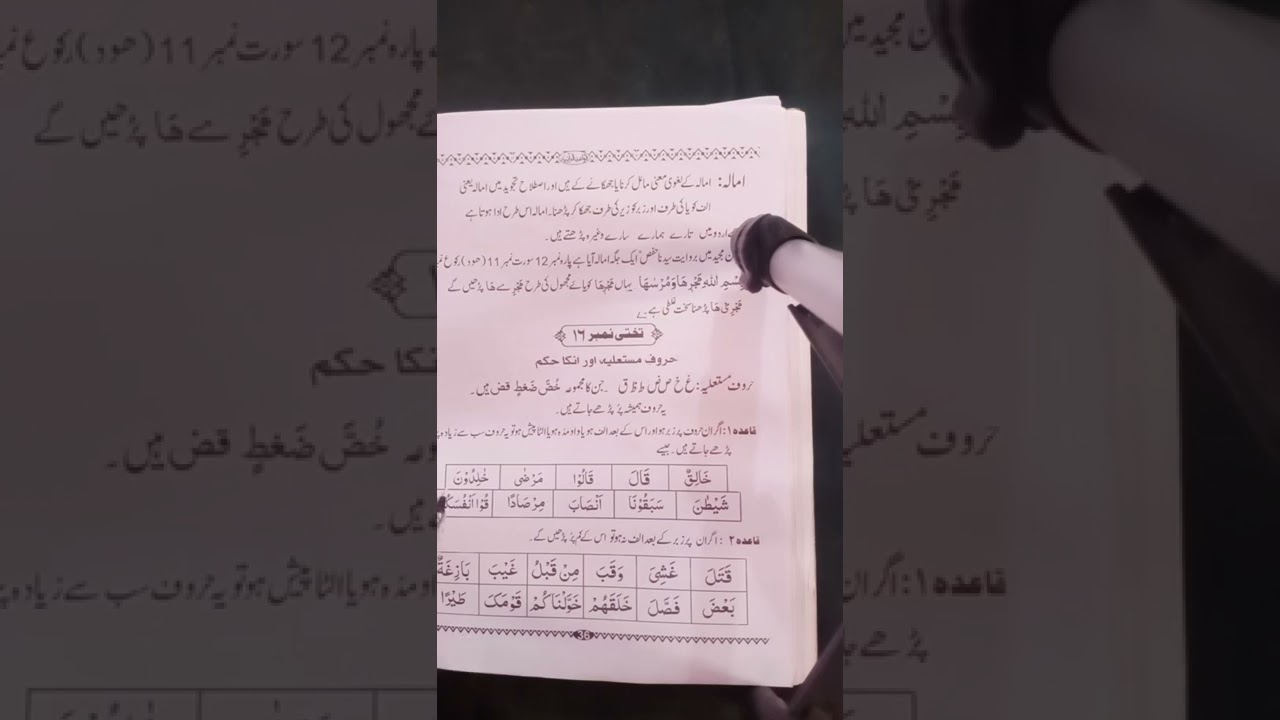 امالہ: امالہ کے لغوی معنی مائل کرنا یا جھکانے کے ہیں اور اصطلاح تجوید میں امالہ یعنی
الف کو یا ئی طرف اور زبر کو زیر کی طرف جھکا کر پڑھنا۔ امالہ اس طرح ادا ہوتا ہے
اردو میں تارے ہمارے سارے وغیرہ پڑھتے ہیں۔
مجید میں بروایت سیدنا حفص ایک جگہ امالہ آیا ہے پارہ نمبر 12 سورت نمبر 11 (ھود) رکوع
بِسْمِ اللهِ مَجْرٖىهَا وَمُرْسٰىهَا یہاں کو یائے مجہول کی طرح سے ھَا پڑھیں گے
ھَا پڑھنا سخت غلطی ہے۔
تختی نمبر ۱۶
حروف مستعلیہ اور انکا حکم
حروف مستعلیہ: غ خ ص ض ط ظ ق ۔ جن کا مجموعہ خُصَّ ضَغْطٍ قض ہیں۔
یہ حروف ہمیشہ پُر پڑھے جاتے ہیں۔
قاعدہ ۱: اگر ان حروف پر زبر ہو اور اس کے بعد الف ہو یا واو مدہ ہو یا الٹا پیش ہو تو یہ حروف سب سے زیادہ
پڑھے جاتے ہیں۔ جیسے
خَالِقٌ قَالَ قَالُوْا مَرْضٰى خٰلِدُوْنَ
شَيْطٰنَ سَبَقُوْنَا اَنْصَابَ مِرْصَادًا قُوْا اَنْفُسَكُ
قاعدہ ۲: اگر ان پر زبر کے بعد الف نہ ہو تو اس کے کم پُر پڑھیں گے۔
قَتَلَ غَشِيَ وَقَبَ مِنْ قَبْلُ غَيْبَ بَازِغَةً
بَعْضَ فَصَّلَ خَلَقَهُمْ خَوَّلْنَاكُمْ قَوْمَكَ طَيْرًا
36